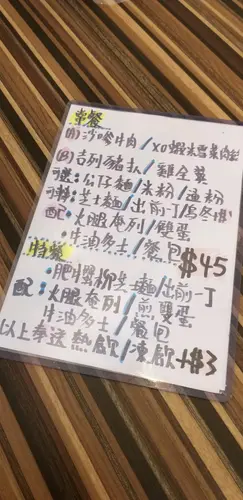 常餐
(A) 沙嗲牛肉/XO蝦米雪菜肉絲
(B) 吉列豬扒/雞全翼
可選:公仔麵/米粉/通粉
可轉:芝士麵/出前一丁/烏冬
配:火腿奄列/雙蛋
牛油多士/餐包 $45
特餐
·肥牛柳芝士麵/出前一丁
配:火腿奄列/煎雙蛋
牛油多士/餐包
以上奉送熱飲/凍飲+$3